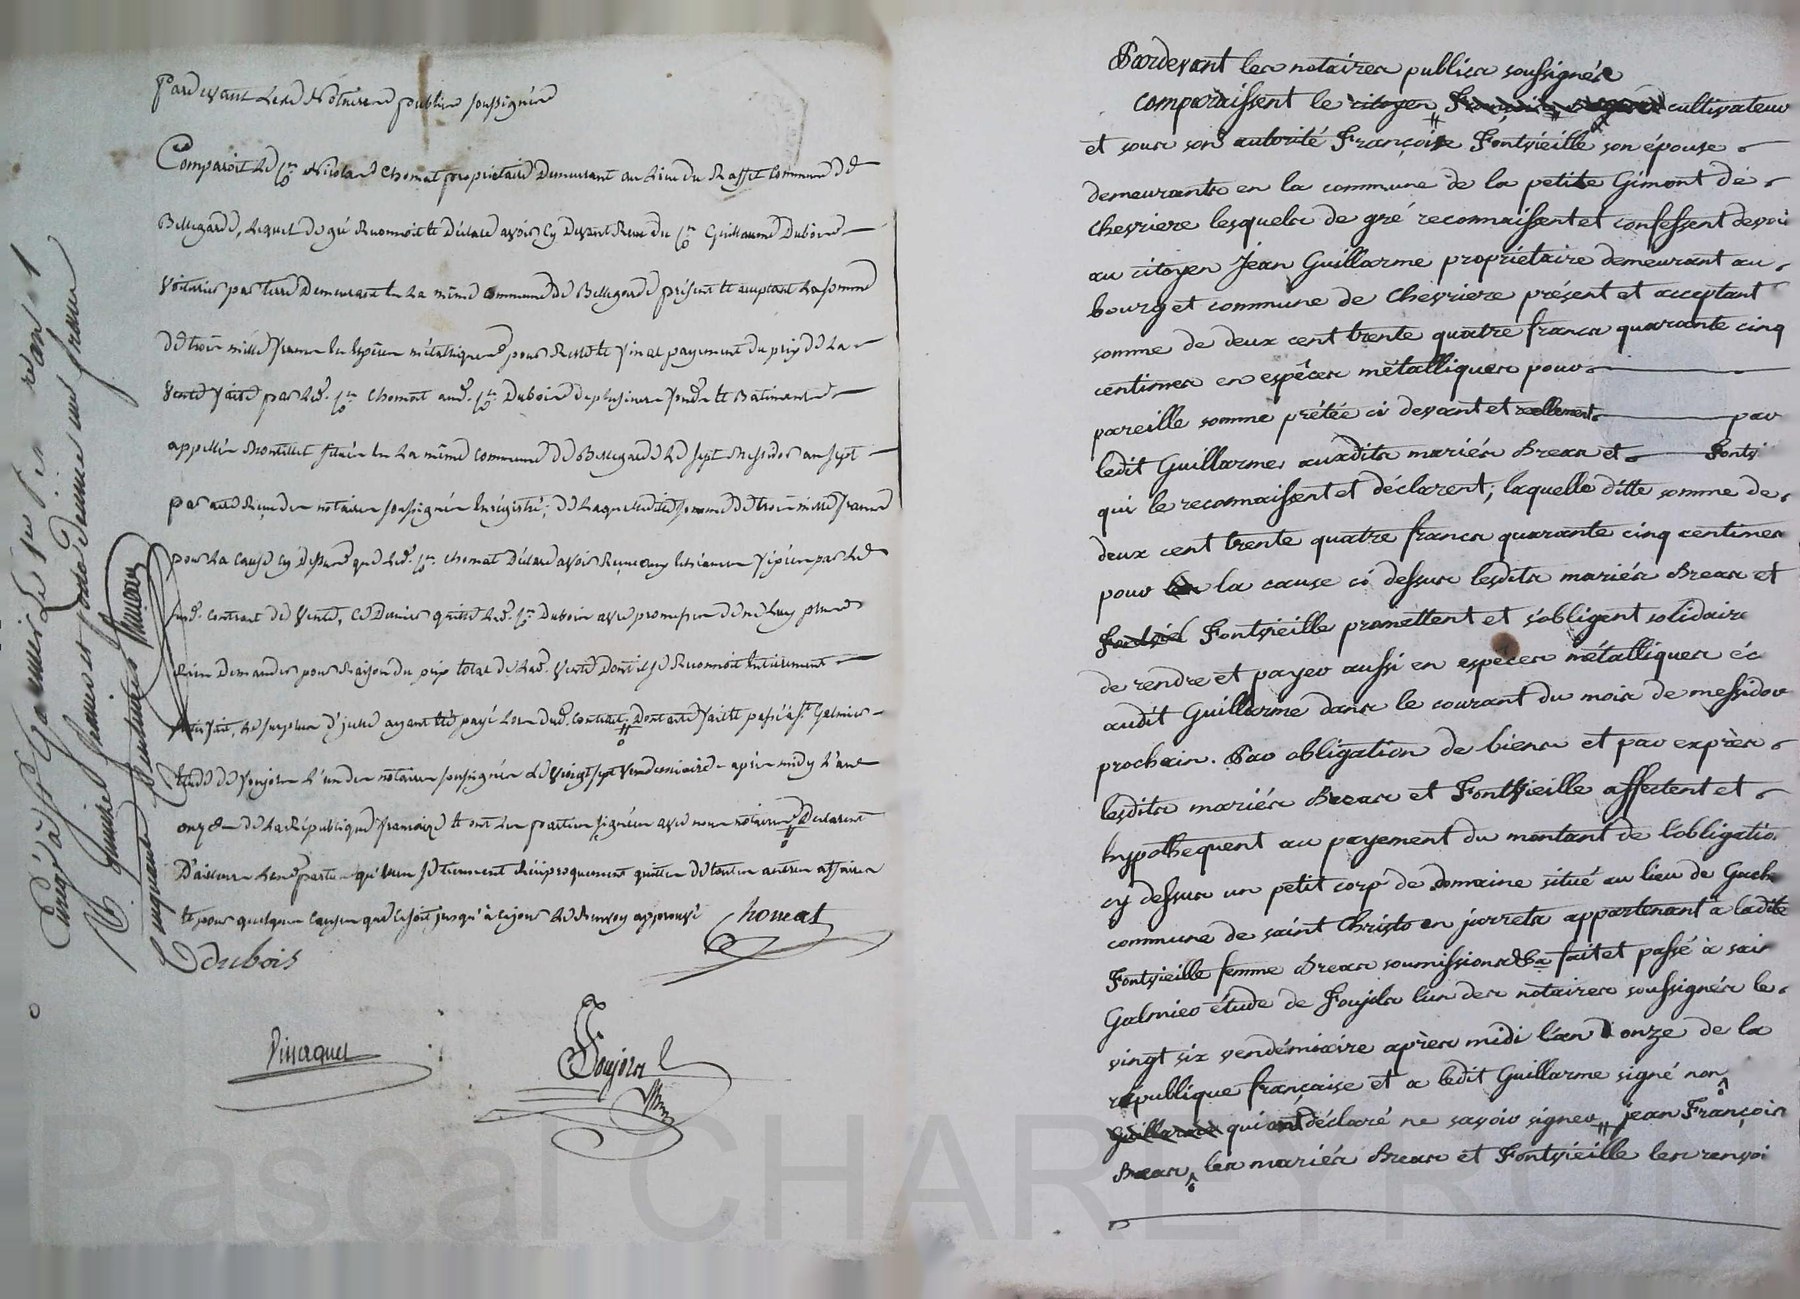 Pardevant Les Notaires publics soussignés
Comparoit le Cen Nicolas Chomat propriétaire Demeurant au Lieu du Raffet Commune de
Bellegarde, Lequel de gré Reconnoit et Déclare avoir Cy Devant Reçu du Cen Guillaume Dubois
Voiturier par terre Demeurant en La même commune de Bellegarde présent et acceptant La somme
de trois mille francs En Espèces métalliques pour Reste et final payement du prix de La
Vente faite par Led. Cen Chomat aud. Cen Dubois de plusieurs fonds et Batiments
appellés situés en La même commune de Bellegarde Le sept Messidor an sept
par acte Reçu des notaires soussignés Enregistré; de Laquelle ditte somme de trois mille francs
pour La Cause Cy Dessus que Led. Cen Chomat Déclare avoir Reçue aux Echéances fixées par Le
sud. Contract de Vente, Ce Dernier quitte Led. Cen Dubois avec promesse de ne Luy plus
Rien Demander pour Raison du prix total de Lad. Vente Dont il se Reconnoit Entièrement
satisfait, Le surplus D'icelle ayant été payé Lors dud. Contract; Dont acte fait et passé à St Galmier
étude de Foujols L'un des notaires soussignés Le Vingt sept Vendemiaire après midy L'an
onze de La République française et ont Les parties signées avec nous notaires Déclarent
D'ailleurs Les parties qu'elles se tiennent Réciproquement quittes de toutes autres affaires
et pour quelques Causes que Ce soit jusqu'à Ce jour Le Renvoy approuvé Chomat
Dubois
Foujols
Enregistré à St Galmier Le
quinze francs et
Cinquante Centimes
Pardevant les notaires publics soussignés
comparaissent le citoyen cultivateur
et sous son autorité Françoise Fontvieille son épouse
demeurants en la commune de la petite Gimont de
chevriere lesquels de gré reconnaissent et confessent devoir
au citoyen Jean Guillarme propriétaire demeurant au
bourg et commune de Chevriere présent et acceptant
somme de deux cent trente quatre francs quarante cinq
centimes en espêces métalliques pour
pareille somme prêtée ci devant et reellement par
ledit Guillarme auxdits mariés Breas et Fontvi
qui le reconnaissent et déclarent; laquelle ditte somme de
deux cent trente quatre francs quarante cinq centimes
pour la cause ci dessus lesdits mariés Breas et
Fontvieille promettent et s'obligent solidaire
de rendre et payer aussi en espèces métalliques éc
audit Guillarme dans le courant du mois de messidor
prochain. Par obligation de biens et par exprès
lesdits mariés Breas et Fontvieille affectent et
hypothequent au payement du montant de l'obligatio
cy dessus un petit corp de domaine situé au lieu de
commune de saint Christo en jarrets appartenant à ladite
Fontvieille femme Breas soumissions &a fait et passé à sain
Galmier étude de Foujols l'un des notaires soussignés le
vingt six vendémiaire après midi l'an onze de la
république française et a ledit Guillarme signé non
qui ont déclaré ne savoir signer jean François
Breas, les mariés Breas et Fontvieille les renvoi
Pascal CHAREYRON